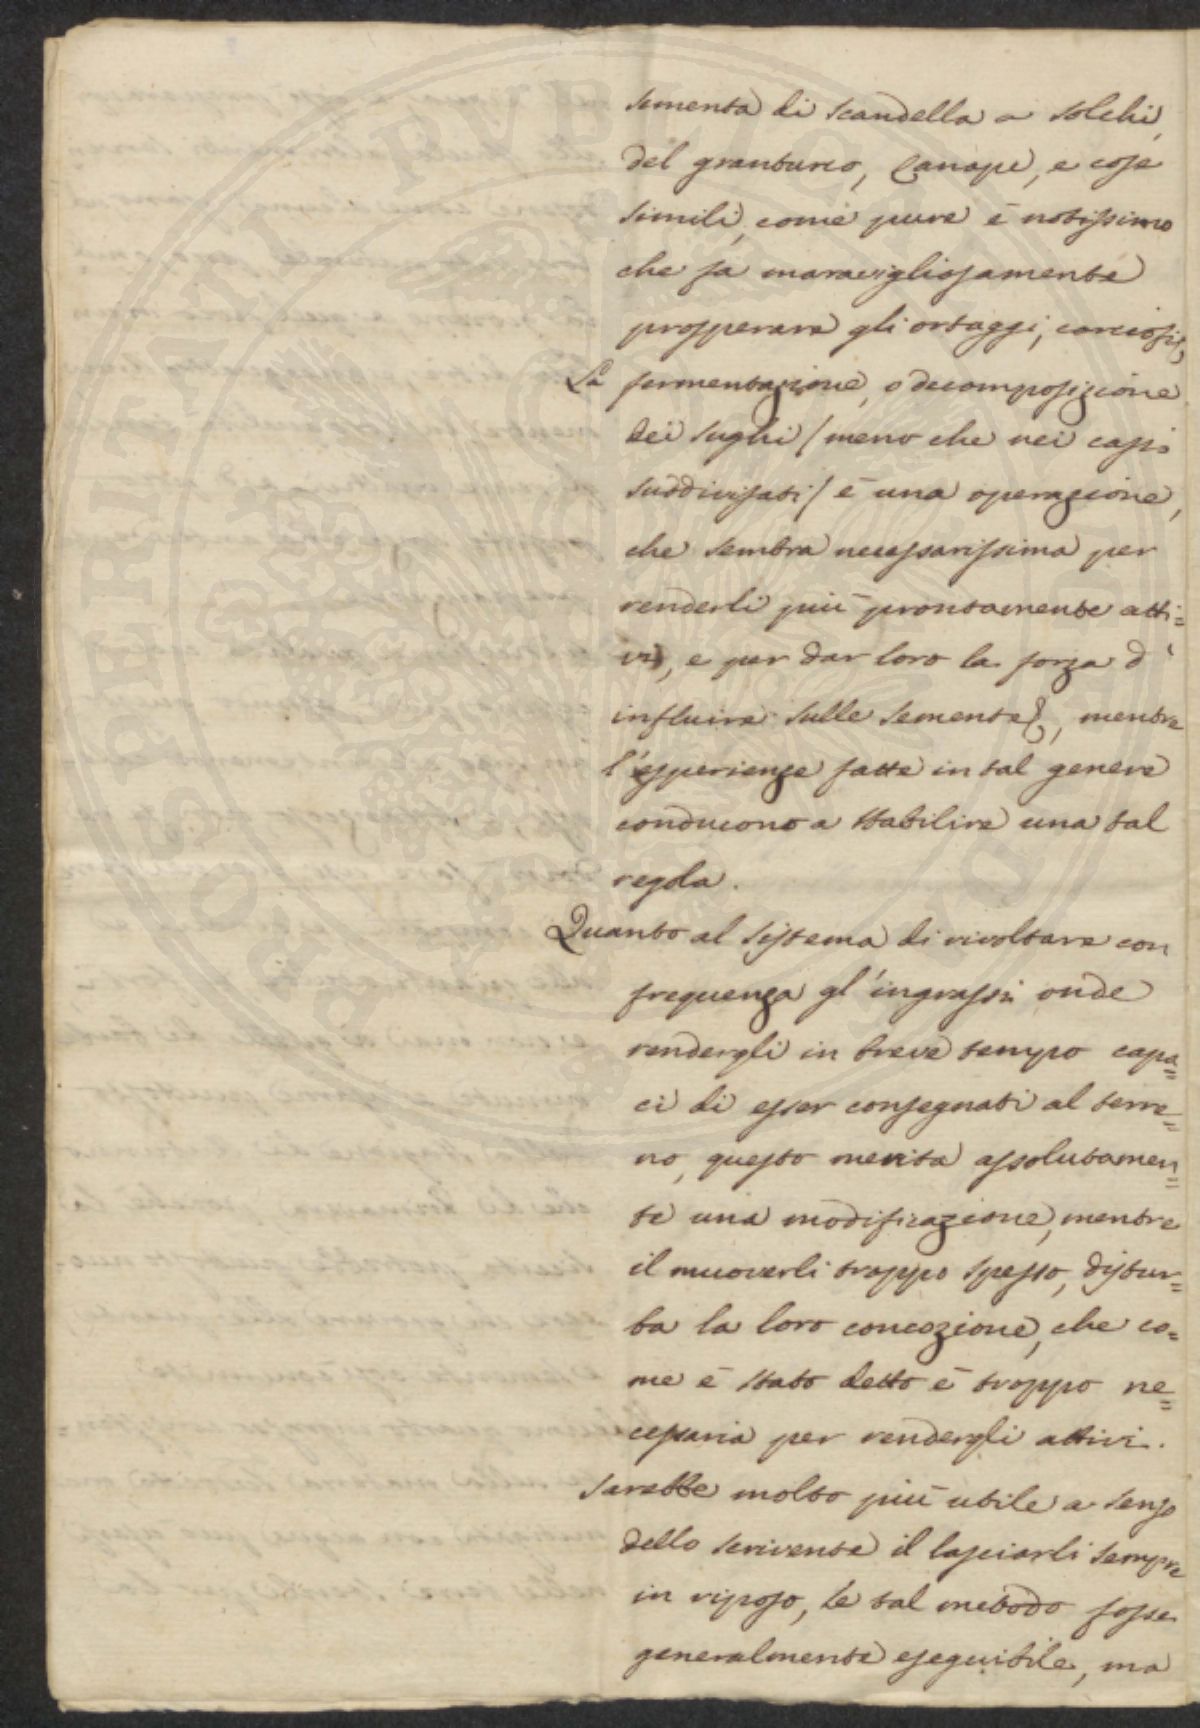 sementa di scandella a solchi,
del granturco, Canape, e cose
simili, come pure è notissimo
che fà maravigliosamente
prosperare gli ortaggi, carciofi &,
La fermentazione, o decomposizione
dei sughi (meno che nei casi
suddivisati) è una operazione,
che sembra necessarissima per
renderli più prontamente atti=
vi, e per dar loro la forza d'
influire sulle semente &, mentre
l'esperienze fatte in tal genere
conducono a stabilire una tal
regola.
Quanto al sistema di rivoltare con
frequenza gl'ingrassi onde
rendergli in breve tempo capa=
ci di esser consegnati al terre=
no, questo merita assolutamen=
te una modificazione, mentre
il muoverli troppo spesso, distur=
ba la loro concozione, che co=
me è stato detto è troppo ne=
cessaria per rendergli attivi.
Sarebbe molto più utile a senso
dello scrivente il lasciarli sempre
in riposo, se tal metodo fosse
generalmente eseguibile, ma
PROSPERITATI PVBLICAE